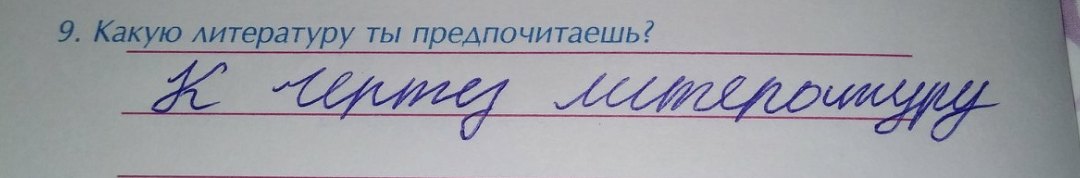 9. Какую литературу ты предпочитаешь?
К чертез литературу